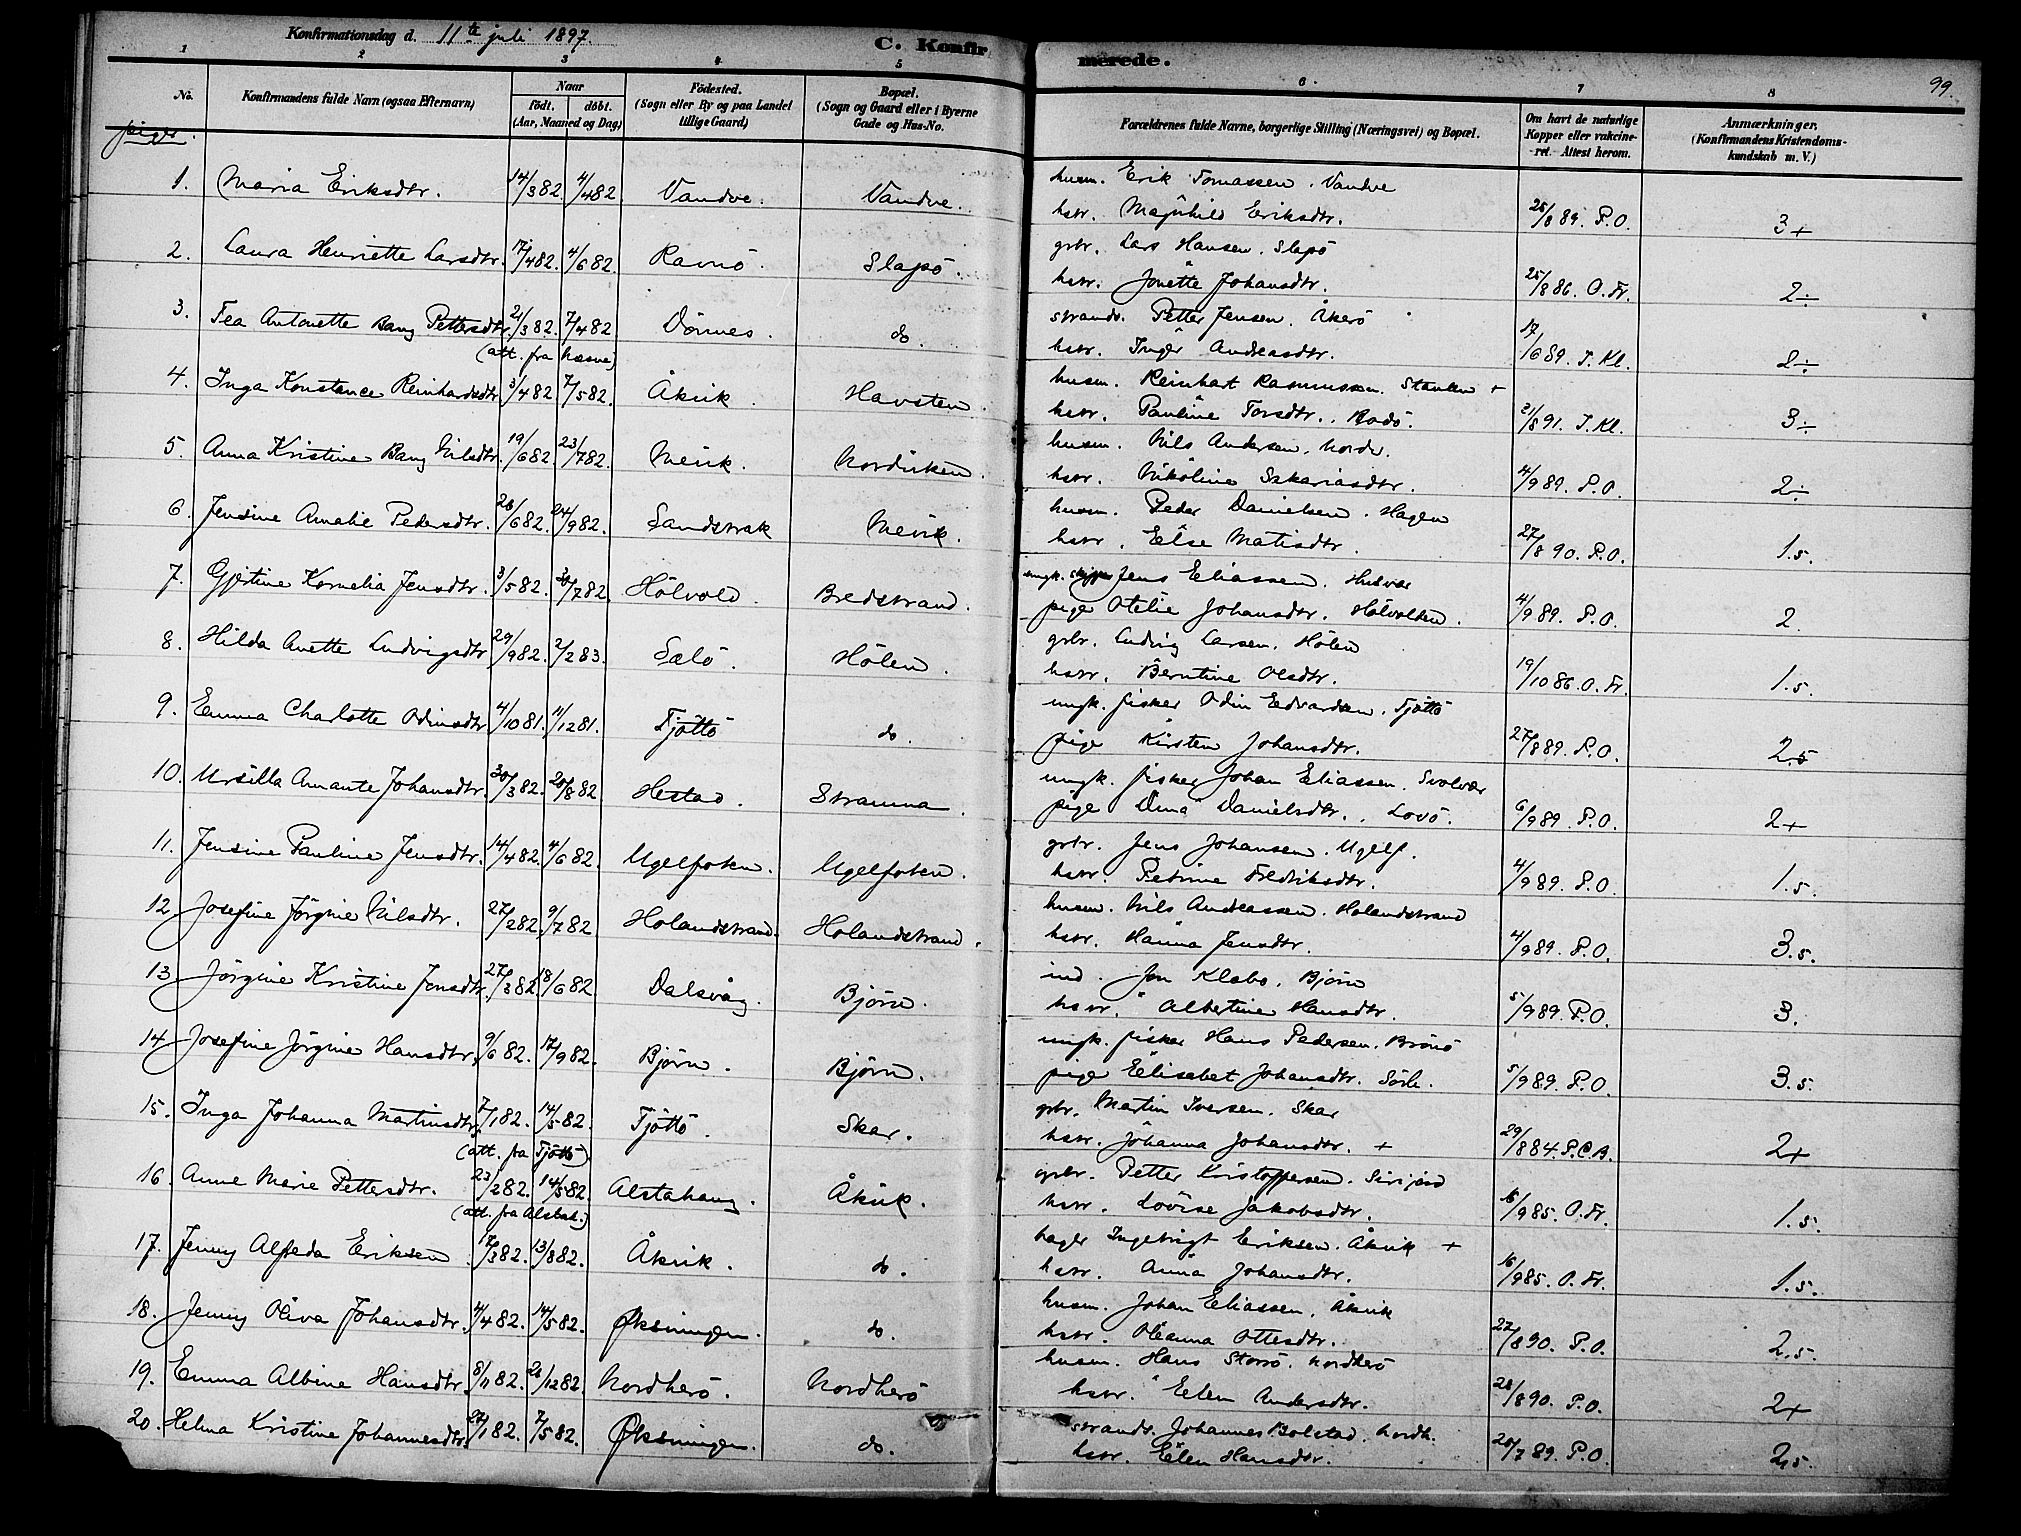 Konfirmationsdag d. 11te juli 1897.
C. Konfirmerede.
99.
1 2 3 4 5 6 7 8
No. Konfirmandens fulde Navn (ogsaa Efternavn) Naar født. døbt. (Aar, Maaned og Dag) Födested. (Sogn eller By og paa Landet tillige Gaard) Bopæl. (Sogn og Gaard eller i Byerne Gade og Hus-No. Forældrenes fulde Navne, borgerlige Stilling (Næringsvei) og Bopæl. Om havt de naturlige Kopper eller vakcineret. Attest herom. Anmærkninger. (Konfirmandens Kristendomskundskab m. V.)
piger.
1. Maria Eriksdtr. 14/3 82. 4/4 82 Vandve. Vandve. husm. Erik Tomassen. Vandve
hstr. Magnhild Eriksdtr. 26/8 89. P.O. 3+
2. Laura Henriette Larsdtr. 17/4 82. 4/6 82. Ravnö. Slapö. grbr. Lars Hansen. Slapö
hstr. Jonette Johansdtr. 25/8 86. O. Fr. 2÷
3. Tea Antonette Bang Pettersdtr. 21/3 82. 7/4 82 Dönnes. do. strands. Petter Jensen. Åkerö
(att. fra Hæsne) hstr. Inger Andreasdtr. 17/6 89. J. Kl. 2÷
4. Inga Konstance Reinhardsdtr. 3/4 82 7/5 82. Åkvik. Havsten. husm. Reinhart Rasmussen. +
hstr. Pauline Torsdtr., Rodö. 21/8 91. J. Kl. 3÷
5. Anna Kristine Bang Nilsdtr. 19/6 82. 23/7 82. Mevik. Nordviken. husm. Nils Andersen. Nordv.
hstr. Nikoline Sakariasdtr. 4/9 89. P.O. 2÷
6. Jensine Amalie Pedersdtr. 28/6 82. 24/9 82. Sandstrak Mevik. husm. Peder Danielsen. Hagen
hstr. Else Matisdtr. 27/8 90. P.O. 1.5.
7. Gjertine Kornelia Jensdtr. 3/5 82. 30/7 82. Hölvold. Bredstrand. ungk. skipper Jens Eliassen. Husvær
pige Otelie Johansdtr. Hölvolden. 4/9 89. P.O. 2.
8. Hilda Anette Ludvigsdtr 29/9 82. 2/2 83. Salö. Hölen. grbr. Ludvig Larsen. Hölen
hstr. Berntine Olsdtr. 19/10 86. O. Fr. 1.5.
9. Emma Charlotte Odinsdtr 4/10 81. 11/12 81. Tjöttö do. ungk. fisker Odin Edvardsen. Tjöttö
pige Kirsten Johansdtr. 27/8 89. P.O. 2.5
10. Ursilla Amante Johansdtr. 30/3 82. 20/8 82 Hestad. Stramna. ungk. fisker Johan Eliassen. Svolvær
pige Dina Danielsdtr., Lovö. 6/9 89. P.O. 2+
11. Jensine Pauline Jensdtr. 14/4 82. 4/6 82. Ugelfoten. Ugelfoten. grbr. Jens Johansen. Ugelf.
hstr. Petrine Fredriksdtr. 4/9 89. P.O. 1.5.
12 Josefine Jörgine Nilsdtr. 27/2 82. 9/7 82. Holandstrand. Holandstrand. husm. Nils Andreassen. Holandstrand
hstr. Hanna Jensdtr. 4/9 89. P.O. 3.5.
13. Jörgine Kristine Jonsdtr. 27/3 82. 18/6 82 Dalsvåg. Bjørn. ind. Jon Klæbo. Bjørn
hstr. Albertine Hansdtr. 5/9 89. P.O. 3.
14 Josefine Jörgine Hansdtr. 9/6 82. 17/9 82. Bjørn. Bjørn. ungk. fisker Hans Pedersen. Brönö
pige Elisabet Johansdtr. Sörh. 5/9 89. P.O. 3.5.
15. Inga Johanna Martinsdtr. 7/1 82. 14/5 82. Tjöttö. Skar. grbr. Martin Iversen. Skar
(att. fra Tjöttö) hstr. Johanna Johansdtr. + 29/8 84. P.C.B. 2+
16. Anne Marie Pettersdtr. 23/2 82. 14/5 82. Alstahaug. Åkvik. grbr. Petter Kristoffersen.
(att. fra Alstah.) hstr. Lovise Jakobsdtr. 16/9 85. O. Fr. 1.5.
17. Jenny Alfreda Eriksen 17/3 82. 13/8 82. Åkvik. do. bager Ingebrigt Eriksen. Åkvik +
hstr. Anna Johansdtr. 16/9 85. O. Fr. 1.5.
18. Jenny Oliva Johansdtr. 4/4 82. 14/5 82. Øksningen. do. husm. Johan Eliassen, Åkvik
hstr. Oleanna Ottesdtr. 27/8 90. P.O. 2.5.
19. Emma Albine Hansdtr. 8/11 82. 26/12 82. Nordherö. Nordherö husm. Hans Storrö. Nordherö
hstr. Elen Andersdtr. 28/8 90. P.O. 2+
20. Helma Kristine Johannesdtr. 29/1 82. 7/5 82. Øksningen. do. strands. Johannes Bolstad. Nordh.
hstr. Elen Hansdtr. 20/7 89. P.O. 2,5.